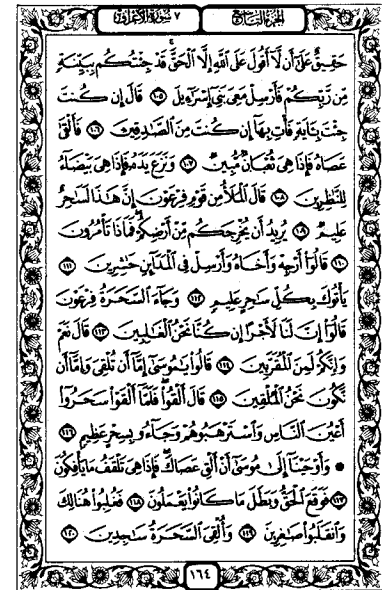 الجزء التاسع ٧ سورة الأعراف
حَقِيقٌ عَلَىٰٓ أَن لَّآ أَقُولَ عَلَى ٱللَّهِ إِلَّا ٱلْحَقَّ قَدْ جِئْتُكُم بِبَيِّنَةٍ
مِّن رَّبِّكُمْ فَأَرْسِلْ مَعِىَ بَنِىٓ إِسْرَٰٓءِيلَ ١٠٥ قَالَ إِن كُنتَ
جِئْتَ بِـَٔايَةٍ فَأْتِ بِهَآ إِن كُنتَ مِنَ ٱلصَّٰدِقِينَ ١٠٦ فَأَلْقَىٰ
عَصَاهُ فَإِذَا هِىَ ثُعْبَانٌ مُّبِينٌ ١٠٧ وَنَزَعَ يَدَهُۥ فَإِذَا هِىَ بَيْضَآءُ
لِلنَّٰظِرِينَ ١٠٨ قَالَ ٱلْمَلَأُ مِن قَوْمِ فِرْعَوْنَ إِنَّ هَٰذَا لَسَٰحِرٌ
عَلِيمٌ ١٠٩ يُرِيدُ أَن يُخْرِجَكُم مِّنْ أَرْضِكُمْ فَمَاذَا تَأْمُرُونَ
١١٠ قَالُوٓا۟ أَرْجِهْ وَأَخَاهُ وَأَرْسِلْ فِى ٱلْمَدَآئِنِ حَٰشِرِينَ ١١١
يَأْتُوكَ بِكُلِّ سَٰحِرٍ عَلِيمٍ ١١٢ وَجَآءَ ٱلسَّحَرَةُ فِرْعَوْنَ
قَالُوٓا۟ إِنَّ لَنَا لَأَجْرًا إِن كُنَّا نَحْنُ ٱلْغَٰلِبِينَ ١١٣ قَالَ نَعَمْ
وَإِنَّكُمْ لَمِنَ ٱلْمُقَرَّبِينَ ١١٤ قَالُوا۟ يَٰمُوسَىٰٓ إِمَّآ أَن تُلْقِىَ وَإِمَّآ أَن
نَّكُونَ نَحْنُ ٱلْمُلْقِينَ ١١٥ قَالَ أَلْقُوا۟ فَلَمَّآ أَلْقَوْا۟ سَحَرُوٓا۟
أَعْيُنَ ٱلنَّاسِ وَٱسْتَرْهَبُوهُمْ وَجَآءُو بِسِحْرٍ عَظِيمٍ ١١٦
۞ وَأَوْحَيْنَآ إِلَىٰ مُوسَىٰٓ أَنْ أَلْقِ عَصَاكَ فَإِذَا هِىَ تَلْقَفُ مَا يَأْفِكُونَ
١١٧ فَوَقَعَ ٱلْحَقُّ وَبَطَلَ مَا كَانُوا۟ يَعْمَلُونَ ١١٨ فَغُلِبُوا۟ هُنَالِكَ
وَٱنقَلَبُوا۟ صَٰغِرِينَ ١١٩ وَأُلْقِىَ ٱلسَّحَرَةُ سَٰجِدِينَ ١٢٠
١٦٤